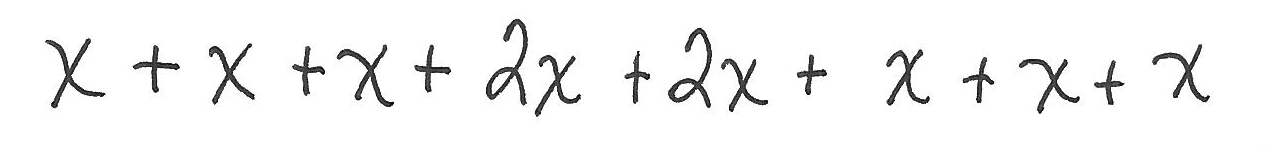 x + x + x + 2x + 2x + x + x + x